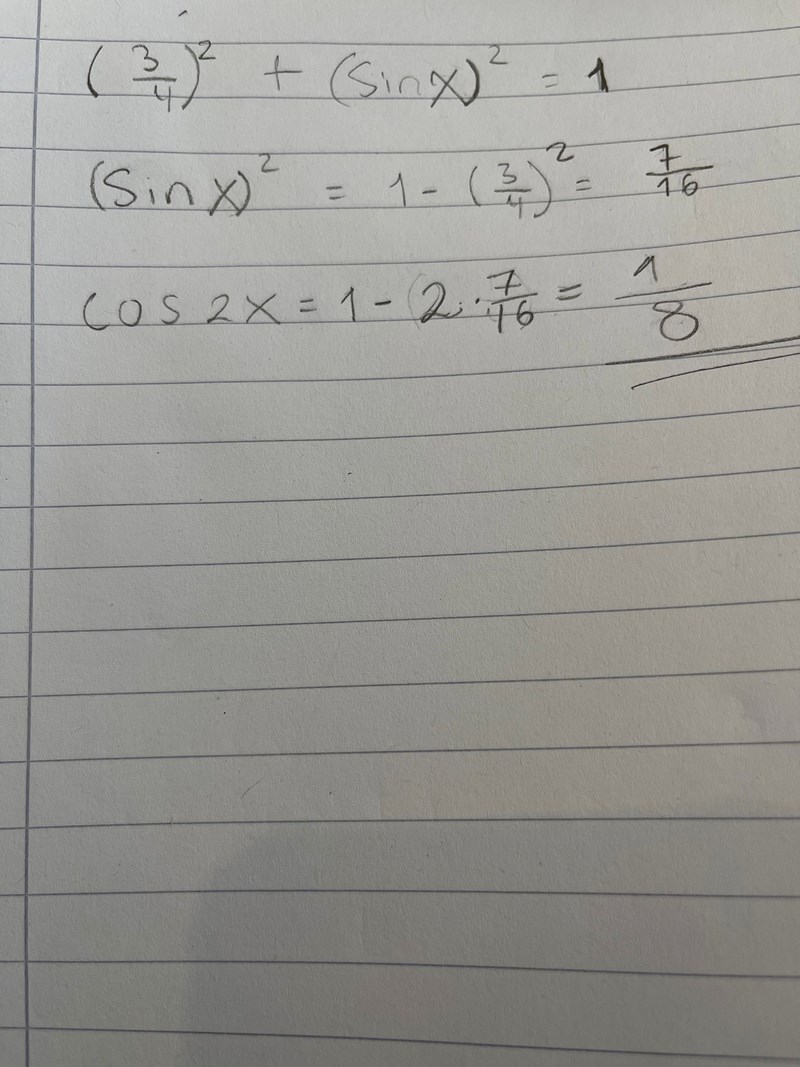 (3/4)² + (sin x)² = 1
(sin x)² = 1 - (3/4)² = 7/16
cos 2x = 1 - 2 · 7/16 = 1/8